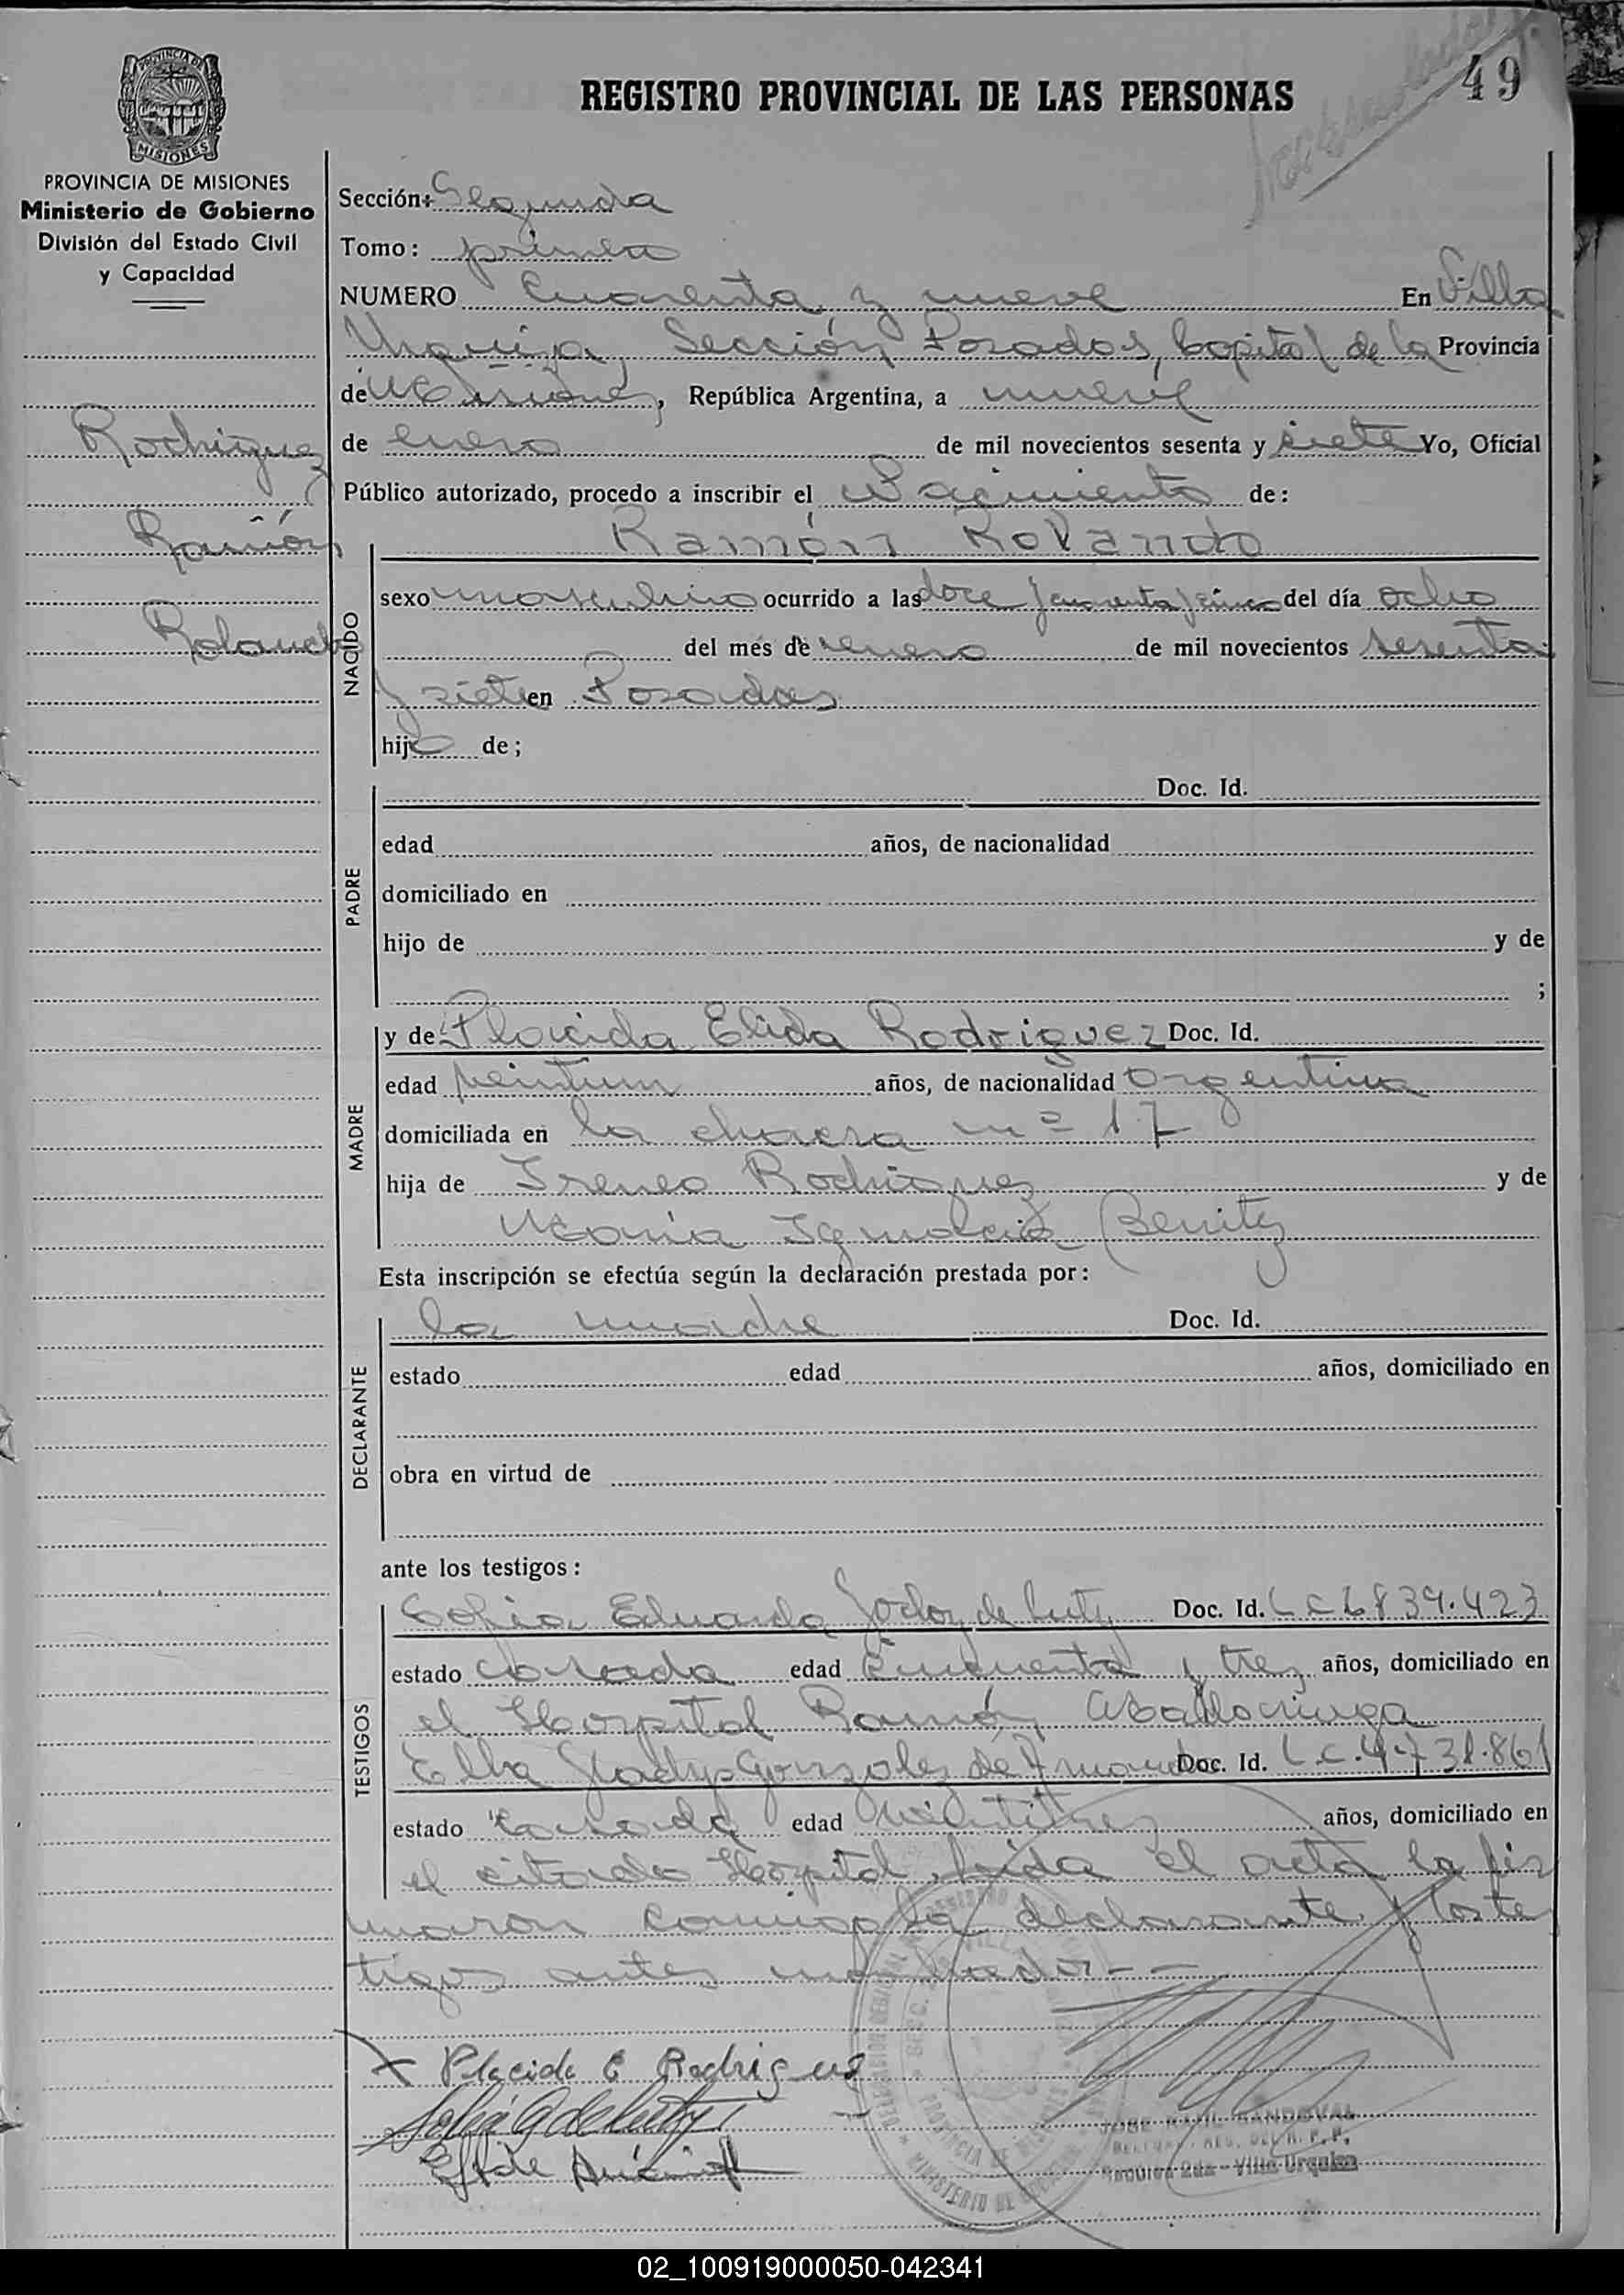 49
REGISTRO PROVINCIAL DE LAS PERSONAS
PROVINCIA DE MISIONES
MISIONES
PROVINCIA DE MISIONES
Ministerio de Gobierno
División del Estado Civil
y Capacidad
Rodriguez
Ramón
Rolando
Sección: Segunda
Tomo: primero
NUMERO Cuarenta y nueve En Villa
Urquiza, Sección Posadas, Capital de la Provincia
de Misiones, República Argentina, a nueve
de enero de mil novecientos sesenta y siete Yo, Oficial
Público autorizado, procedo a inscribir el Nacimiento de:
Ramón Rolando
NACIDO
sexo masculino ocurrido a las doce y cuarenta y cinco del día ocho
del mes de enero de mil novecientos sesenta
y siete en Posadas
hijo de;
Doc. Id.
PADRE
edad años, de nacionalidad
domiciliado en
hijo de y de
;
MADRE
y de Placida Elida Rodriguez Doc. Id.
edad veintiun años, de nacionalidad argentina
domiciliada en la chacra nº 17
hija de Ireneo Rodriguez y de
María Ignacia Benitez
Esta inscripción se efectúa según la declaración prestada por:
DECLARANTE
la madre Doc. Id.
estado edad años, domiciliado en
obra en virtud de
ante los testigos:
TESTIGOS
Sofia Eduarda Godoy de Doc. Id. L C 6839.423
estado casada edad cincuenta y tres años, domiciliado en
el Hospital Ramón Madariaga
Elba Gladys Gonzalez de Doc. Id. L.C. 4.731.861
estado casada edad veintitres años, domiciliado en
el citado Hospital, leida el acta la fir
maron conmigo la declarante y los tes
tigos antes nombrados - -
Placida E Rodriguez
JOSE RAUL SANDOVAL
Sección 2da - Villa Urquiza
02_100919000050-042341